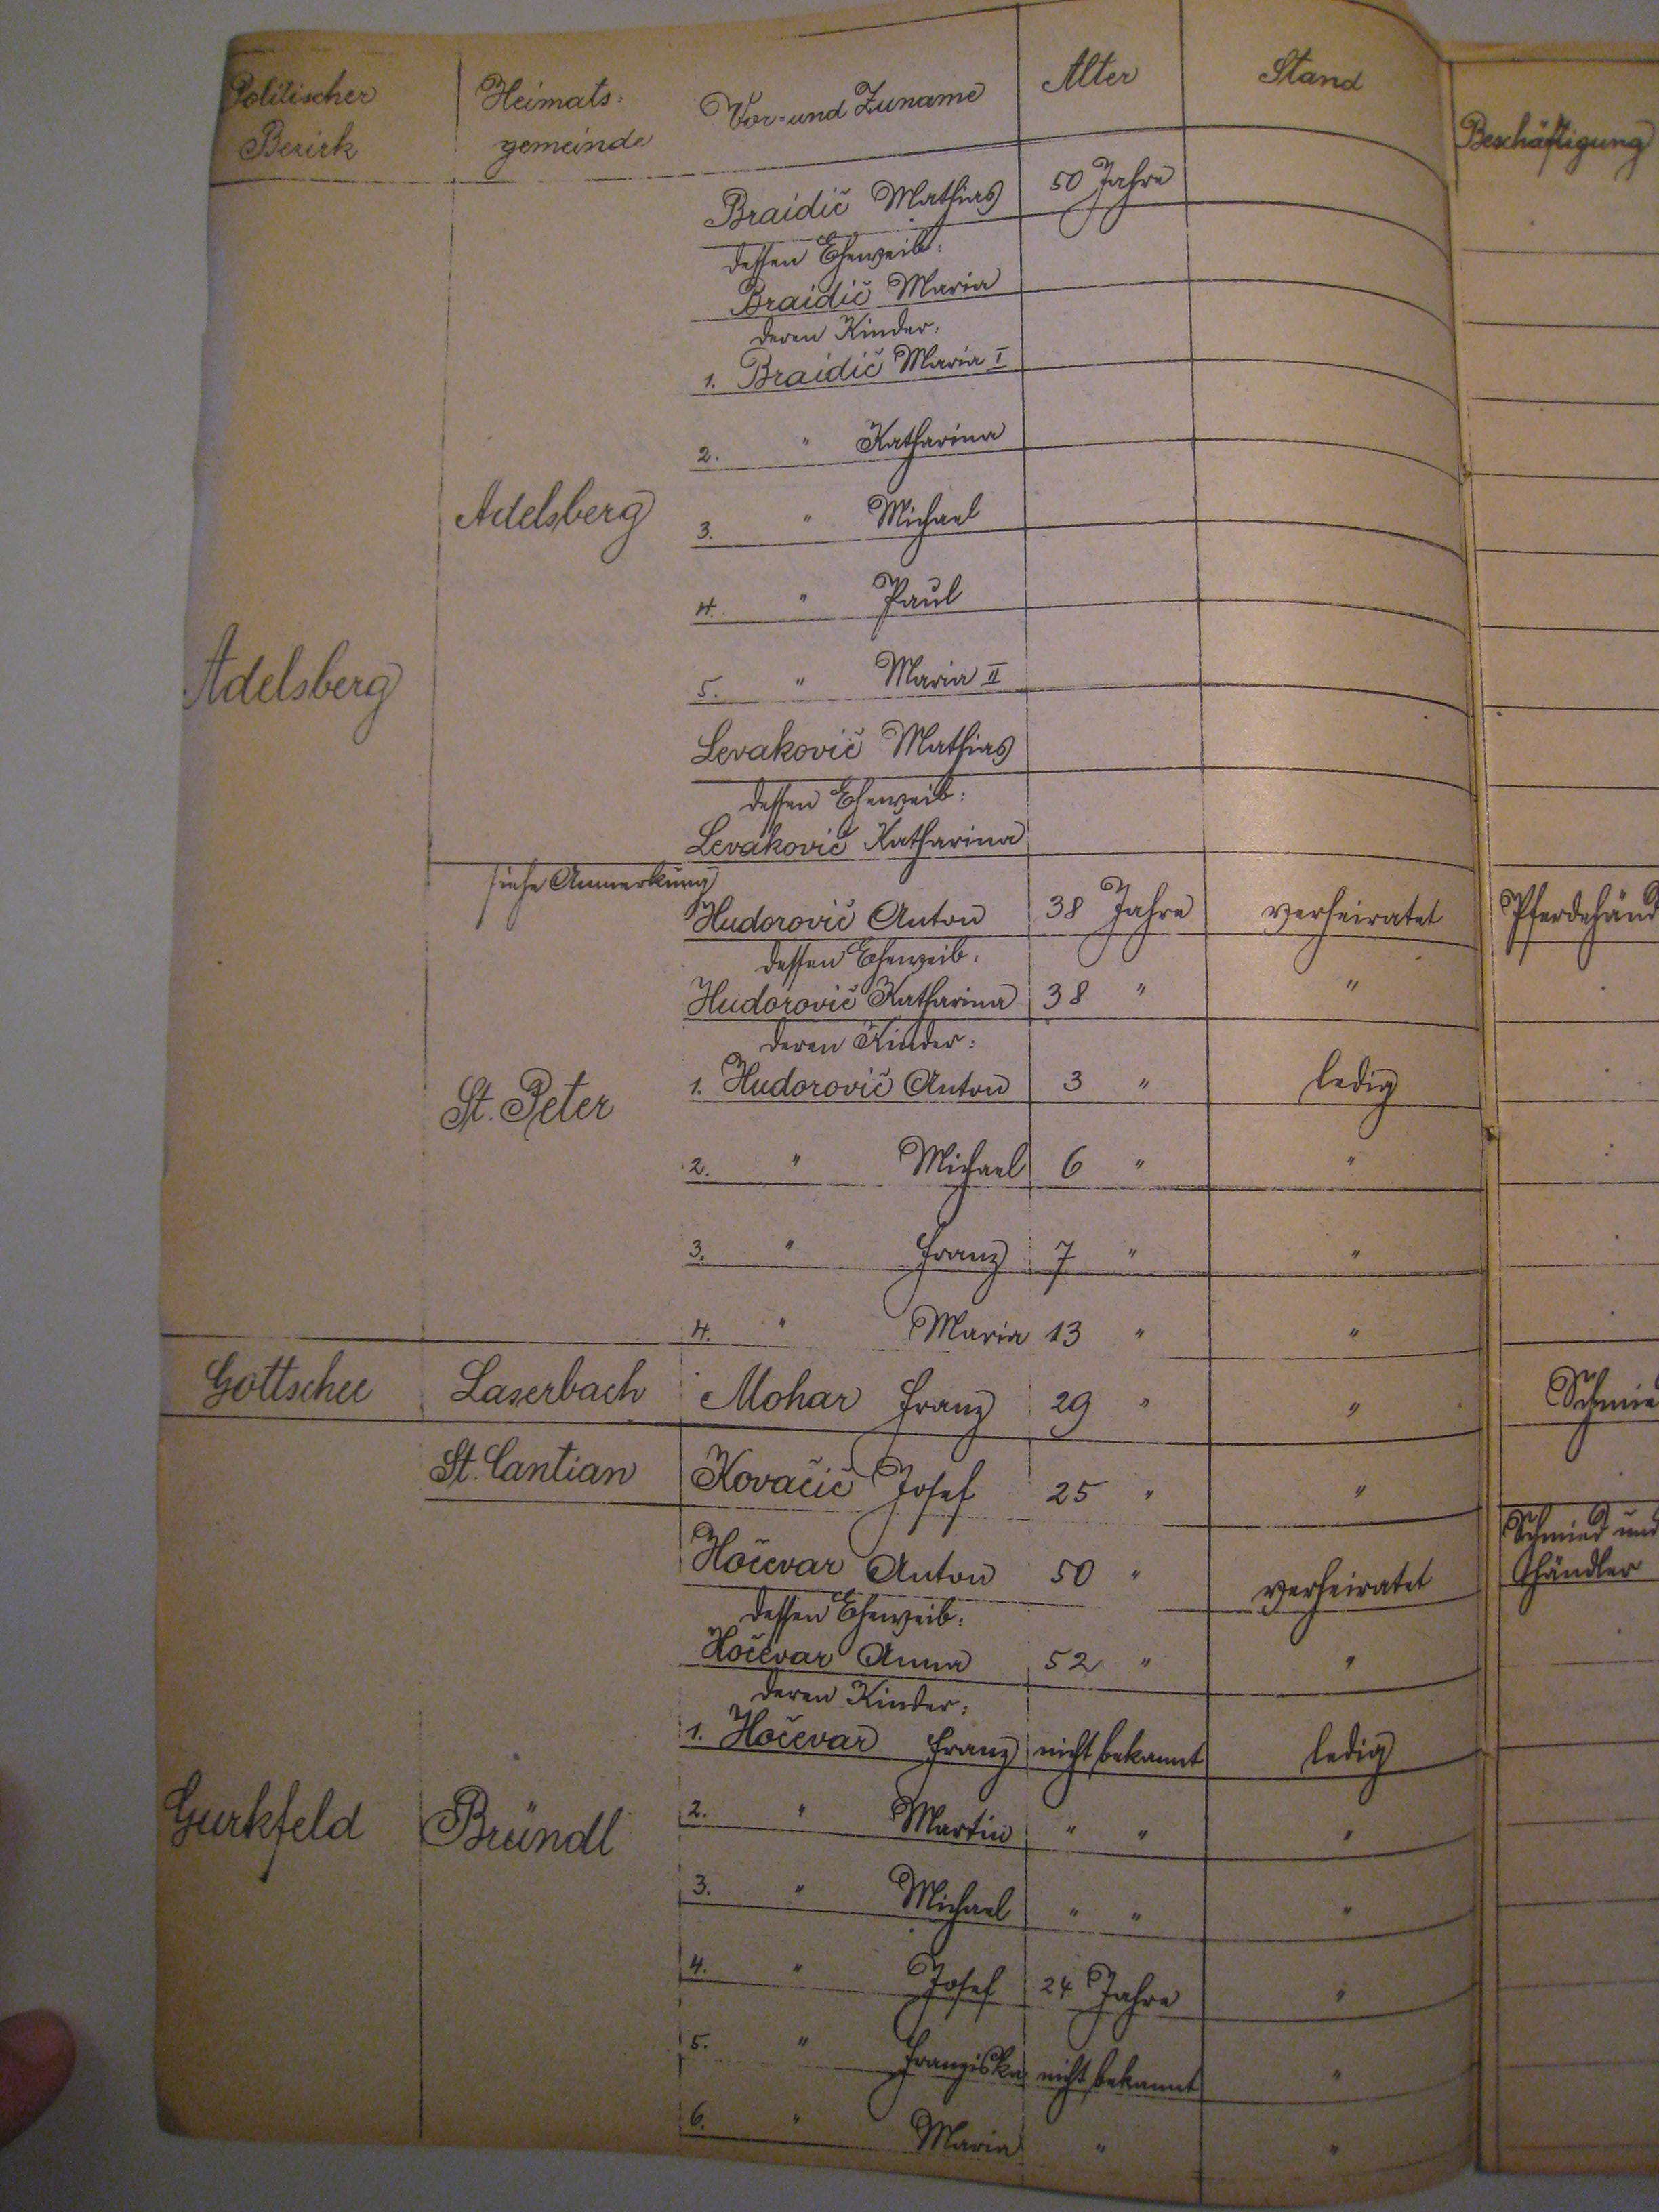 Politischer Bezirk Heimats- gemeinde Vor- und Zuname Alter Stand Beschäftigung
Braidič Mathias 50 Jahre
dessen Eheweib:
Braidič Maria
deren Kinder:
1. Braidič Maria I
2. " Katharina
Adelsberg 3. " Michael
4. " Paul
Adelsberg 5. " Maria II
Levakovič Mathias
dessen Eheweib:
Levakovič Katharina
siehe Anmerkung
Hudorovič Anton 38 Jahre verheiratet Pferdehänd
dessen Eheweib:
Hudorovič Katharina 38 " "
deren Kinder:
St. Peter 1. Hudorovič Anton 3 " ledig
2. " Michael 6 " "
3. " Franz 7 " "
4. " Maria 13 " "
Gottschee Laserbach Mohar Franz 29 " " Schmie
St. Cantian Kovačič Josef 25 " "
Hočevar Anton 50 " verheiratet Schmied und
händler
dessen Eheweib:
Hočevar Anna 52 " "
deren Kinder:
1. Hočevar Franz nicht bekannt ledig
Gurkfeld Bründl 2. " Martin " " "
3. " Michael " " "
4. " Josef 24 Jahre "
5. " Franziska nicht bekannt "
6. " Maria " "